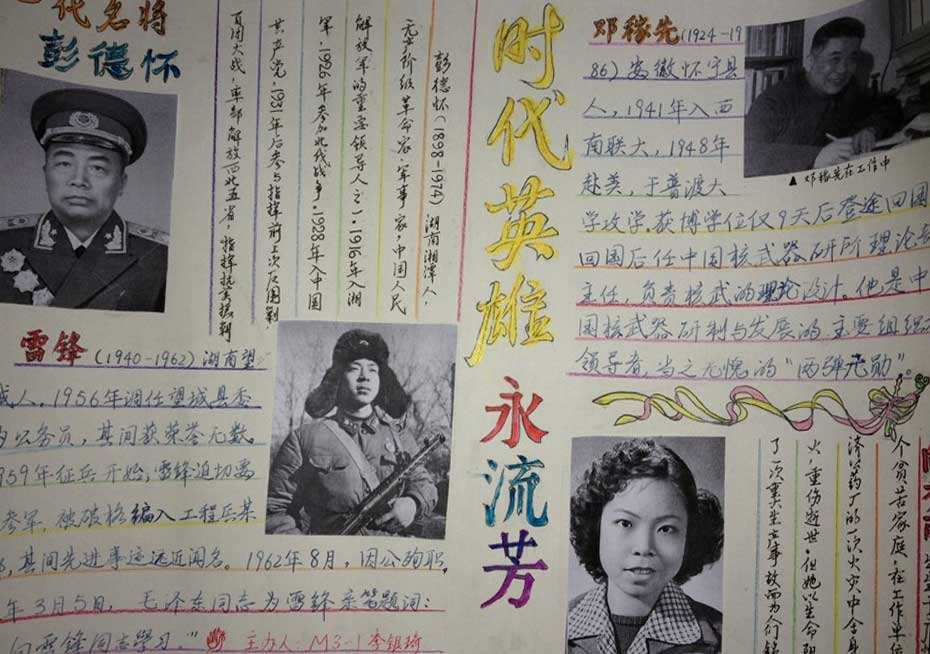 代名将
彭德怀
彭德怀(1898-1974)湖南湘潭人.
无产阶级革命家.军事家.中国人民
解放军的重要领导人之一.1916年入湘
军.1926年参加北伐战争.1928年入中国
共产党.1931年后参与指挥前
百团大战.率部解放西北五省,指挥抗美援
雷锋(1940-1962)湖南望
成人,1956年调任望城县委
公务员,其间获荣誉无数
959年征兵开始,雷锋迫切
参军,被破格编入工程兵某
其间先进事迹远近闻名。1962年8月,因公殉职,
年3月5日,毛泽东同志为雷锋亲笔题词:
向雷锋同志学习。" 主办人:M3-1李银琦
时代英雄
永流芳
邓稼先(1924-19
86)安徽怀宁县
人,1941年入西
南联大,1948年
赴美,于普渡大
学攻学.获博学位仅9天后登途回国
回国后任中国核武器研所理论
主任,负责核武的理论设计。他是中
国核武器研制与发展的主要组织
领导者,当之无愧的"两弹元勋"。
▲邓稼先在工作中
个贫苦家庭.在工作单位
济
药厂的一次火灾中舍身
火.重伤逝世.但她以生命
了一次重大
事故而为人们